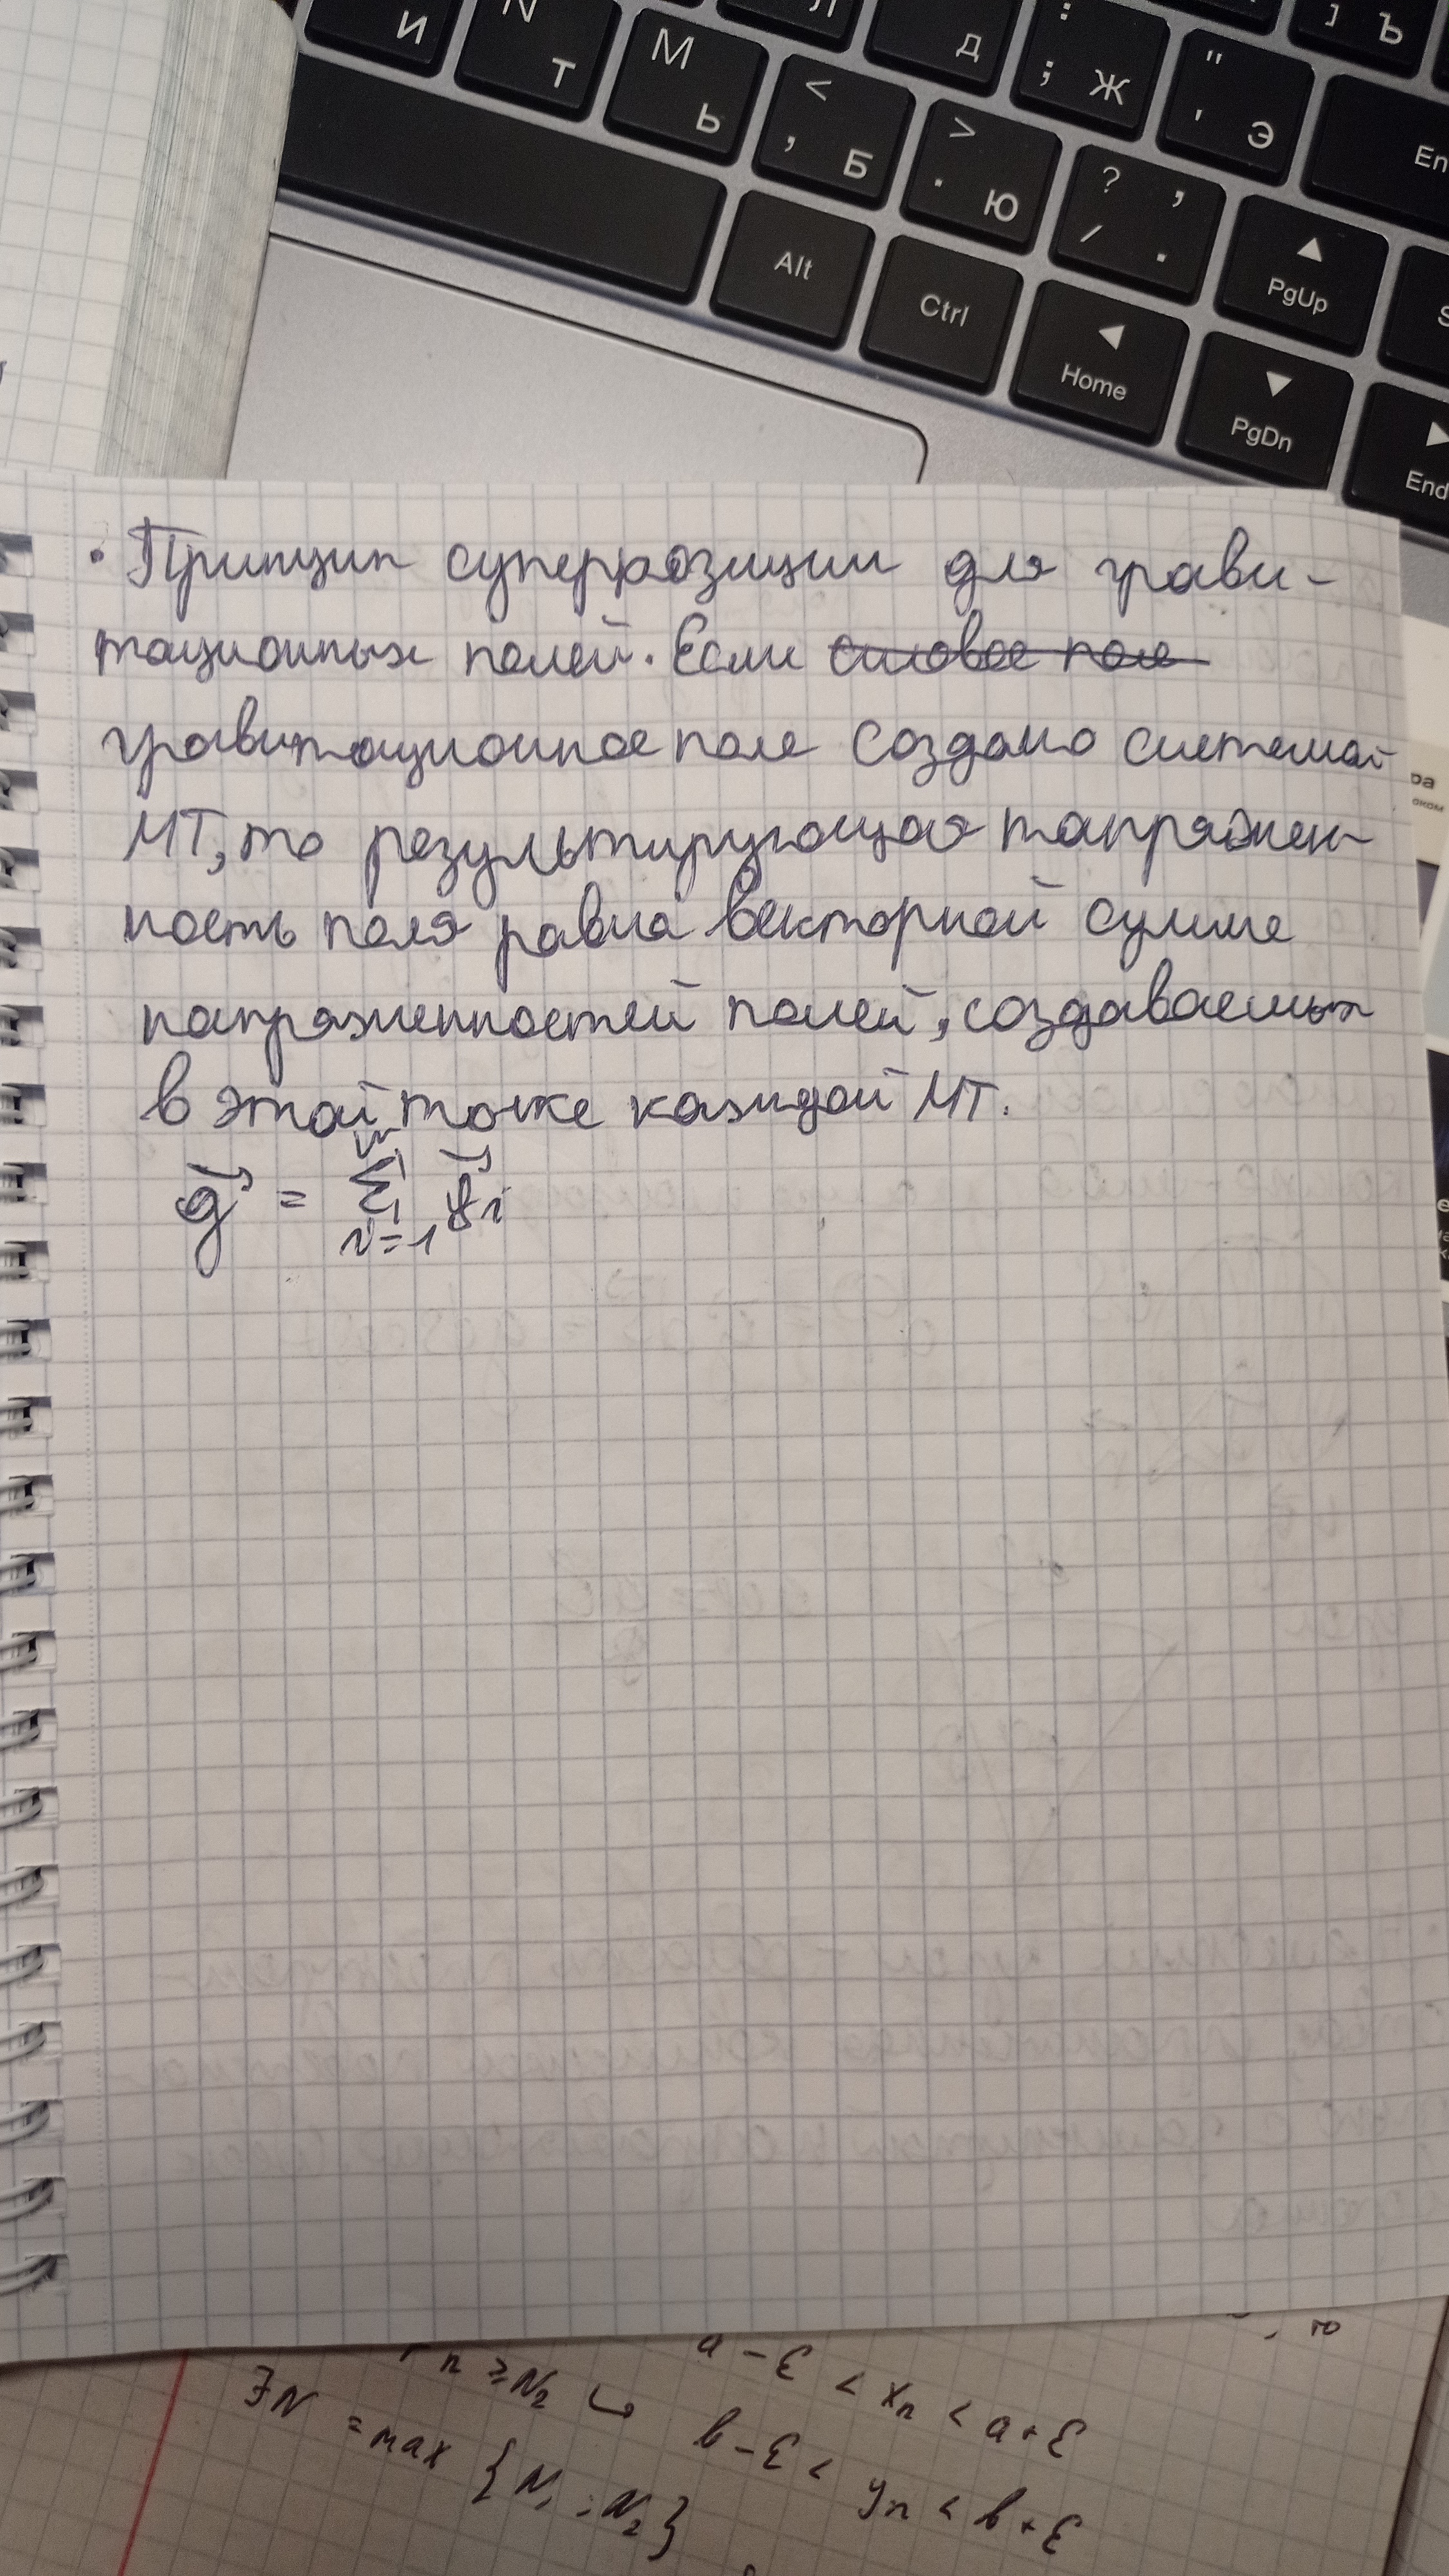 И
N
Т
М
Ь
Л
Д
: ; Ж
" ' Э
] Ъ
< , Б
> . Ю
? / , .
En
Alt
Ctrl
Home
PgUp
PgDn
End
• Принцип суперпозиции для грави-
тационных полей. Если силовое поле
гравитационное поле создано системой
МТ, то результирующая напряжен-
ность поля равна векторной сумме
напряженностей полей, создаваемых
в этой точке каждой МТ.
g⃗ = Σ i=1 n g⃗i
n ≥ N₂ ↪
a - ε < xₙ < a + ε
b - ε < yₙ < b + ε
∃N = max {N₁; N₂}